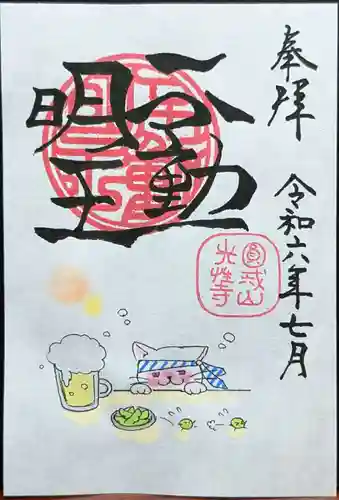 奉拝
令和六年七月
不動
明王
圓戒山
光性寺